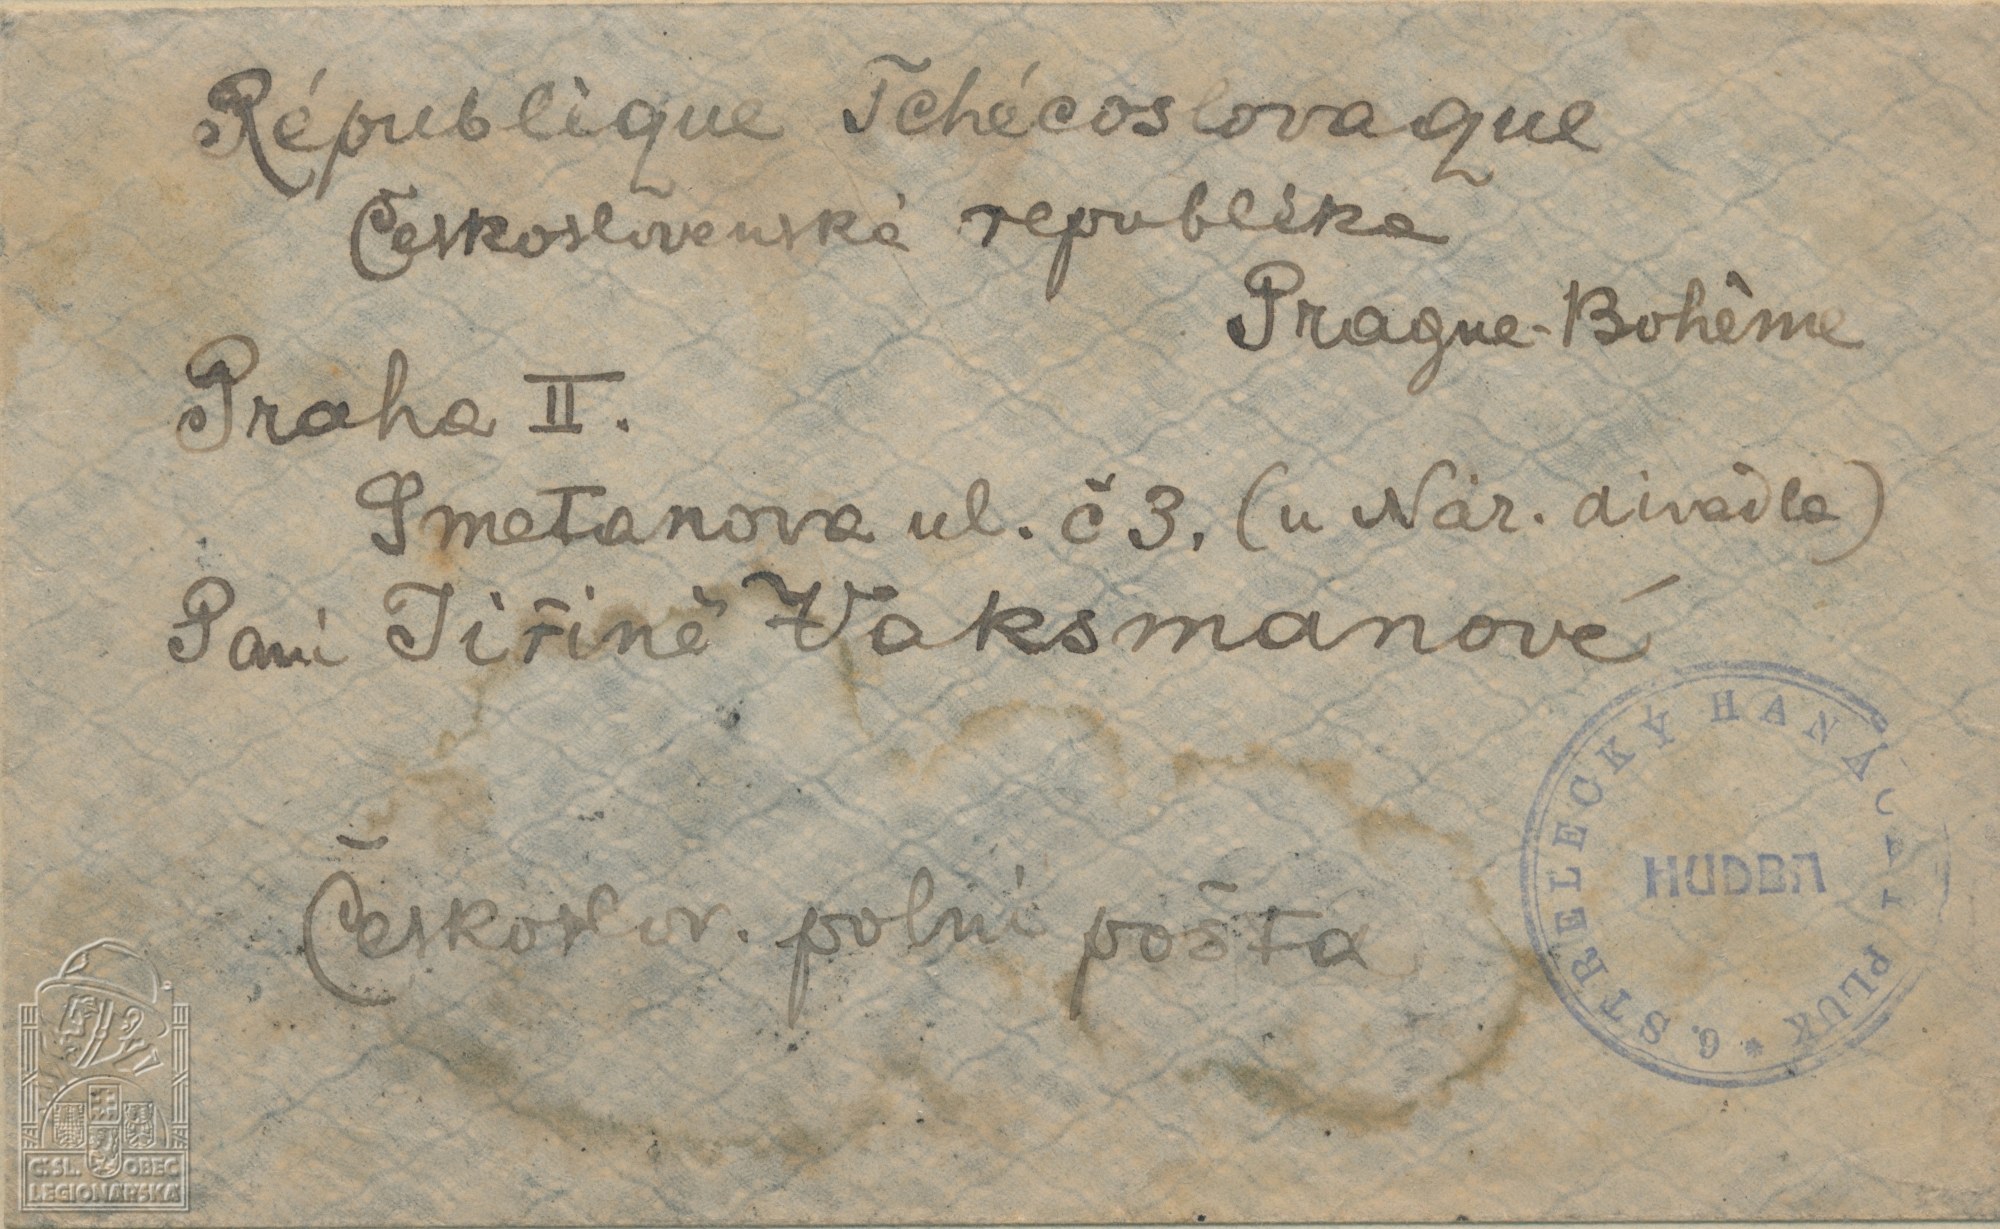 République Tchécoslovaque
Československá republika
Prague-Bohême
Praha II.
Smetanova ul. č 3. (u Nár. divadla)
Paní Jiřině Vaksmanové
Českoslov. polní pošta
6. STŘELECKÝ HANÁCKÝ PLUK *
HUDBA
Č.SL. OBEC
LEGIONÁŘSKÁ